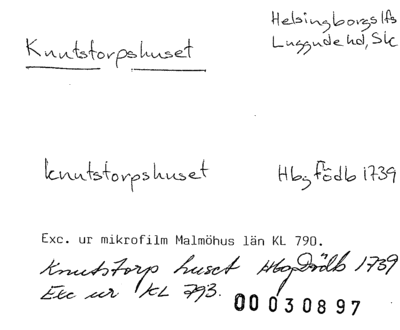 Knutstorpshuset
Helsingborgs lfs
Luggude hd, Sk
Knutstorpshuset Hbg födb 1739
Exc. ur mikrofilm Malmöhus län KL 790.
Knutstorp huset Hbg Dödb 1739
Exc ur KL 793.
00030897